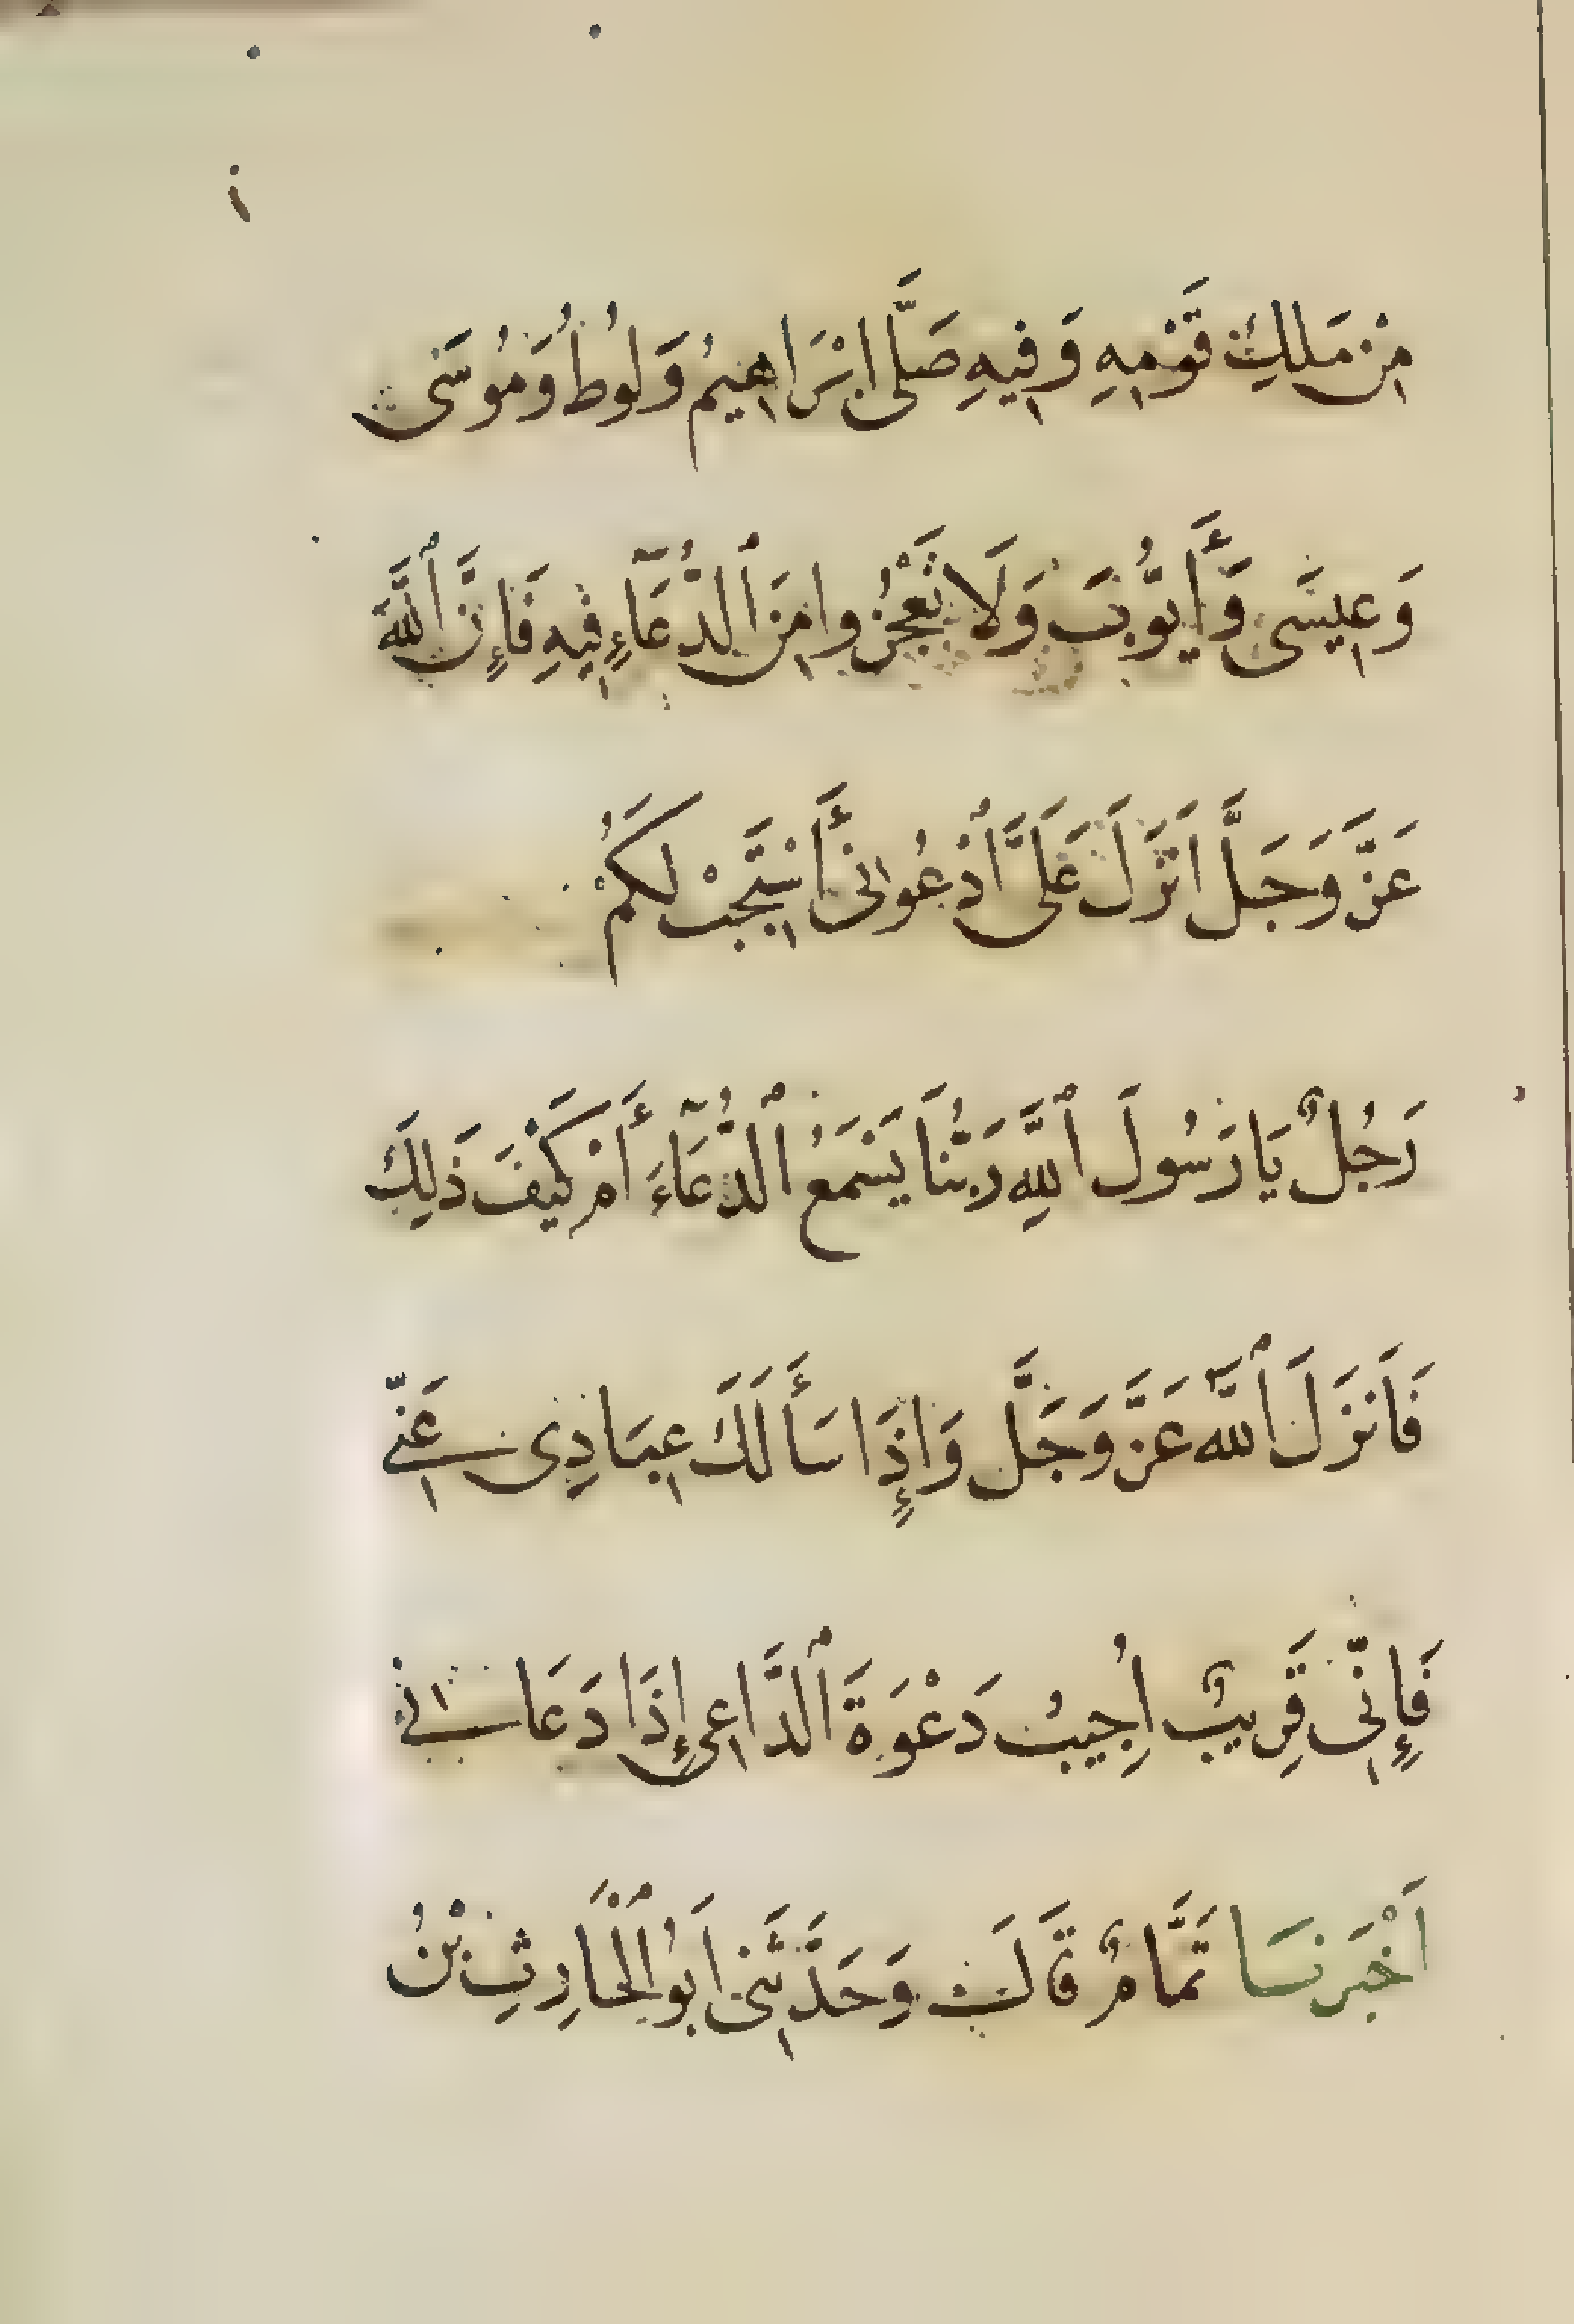 مِنْ مَلِكِ قَوْمِهِ وَفِيهِ صَلَّى ابْرَاهِيمُ وَلُوطُ وَمُوسَى
وَعِيسَى وَأَيُّوبَ وَلَا تَعْجُزُوا مِنَ ٱلدُّعَآءِ فِيهِ فَإِنَّ ٱللَّهَ
عَزَّ وَجَلَّ اَنْزَلَ عَلَىَّ اُدْعُوانِى أَسْتَجِبْ لَكُمْ
رَجُلٌ يَا رَسُولَ ٱللَّهِ رَبُّنَا يَسْمَعُ ٱلدُّعَآءَ أَمْ كَيْفَ ذَلِكَ
فَاَنْزَلَ ٱللَّه عَزَّ وَجَلَّ وَإِذَا سَأَلَكَ عِبَادِى عَنِّى
فَإِنِّى قَرِيبٌ اُجِيبُ دَعْوَةَ ٱلدَّاعِى إِذَا دَعَانِى
اَخْبَرنَا تَمَّامٌ قَالَ وَحَدَّثَنِى اَبُو ٱلْحَارِثِ بْنُ